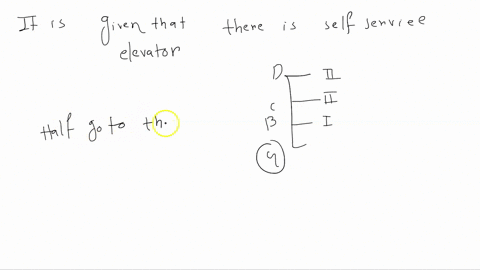 It is given that there is self service
elevator
D II
C II
B I
G
Half go to th